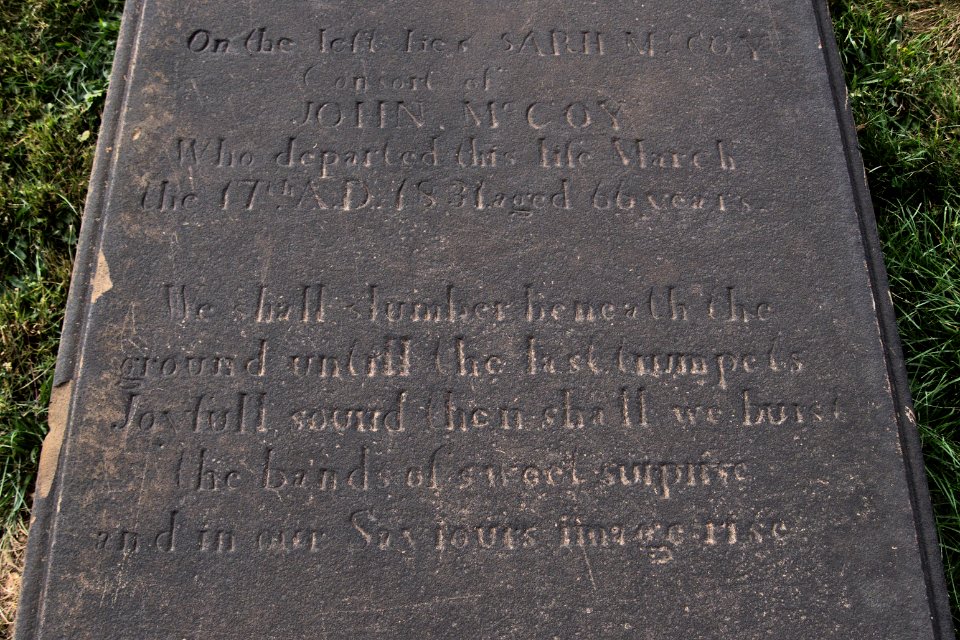 On the left lies SARH McCOY
Consort of
JOHN. McCOY
Who departed this life March
the 17th A.D. 1831 aged 66 years.
We shall slumber beneath the
ground untill the last trumpets
Joyfull sound then shall we burst
the bands of sweet surprire
and in our Saviours iimage rise